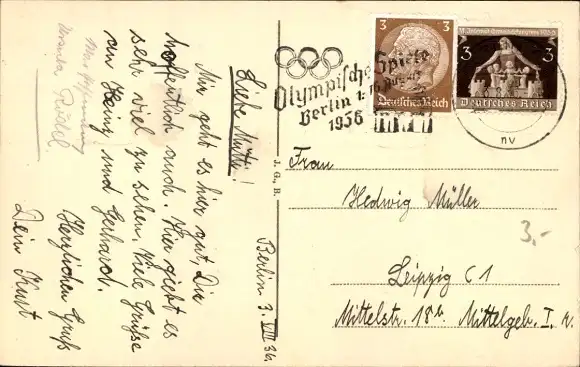 Berlin 3. VIII 36.
Liebe Mutti!
Mir geht es hier gut, Dir
hoffentlich auch. Hier giebt es
sehr viel zu sehen. Viele Grüße
an Heinz und Gerhard.
Herzlichen Gruß
Dein Kurt
J. G., B.
Olympische Spiele
Berlin 1.-16. August
1936
3 3
Deutsches Reich
3 3
Deutsches Reich
nv
Frau
Hedwig Müller
Leipzig C 1
Mittelstr. 18b. Mittelgeb. I. r.
3,-